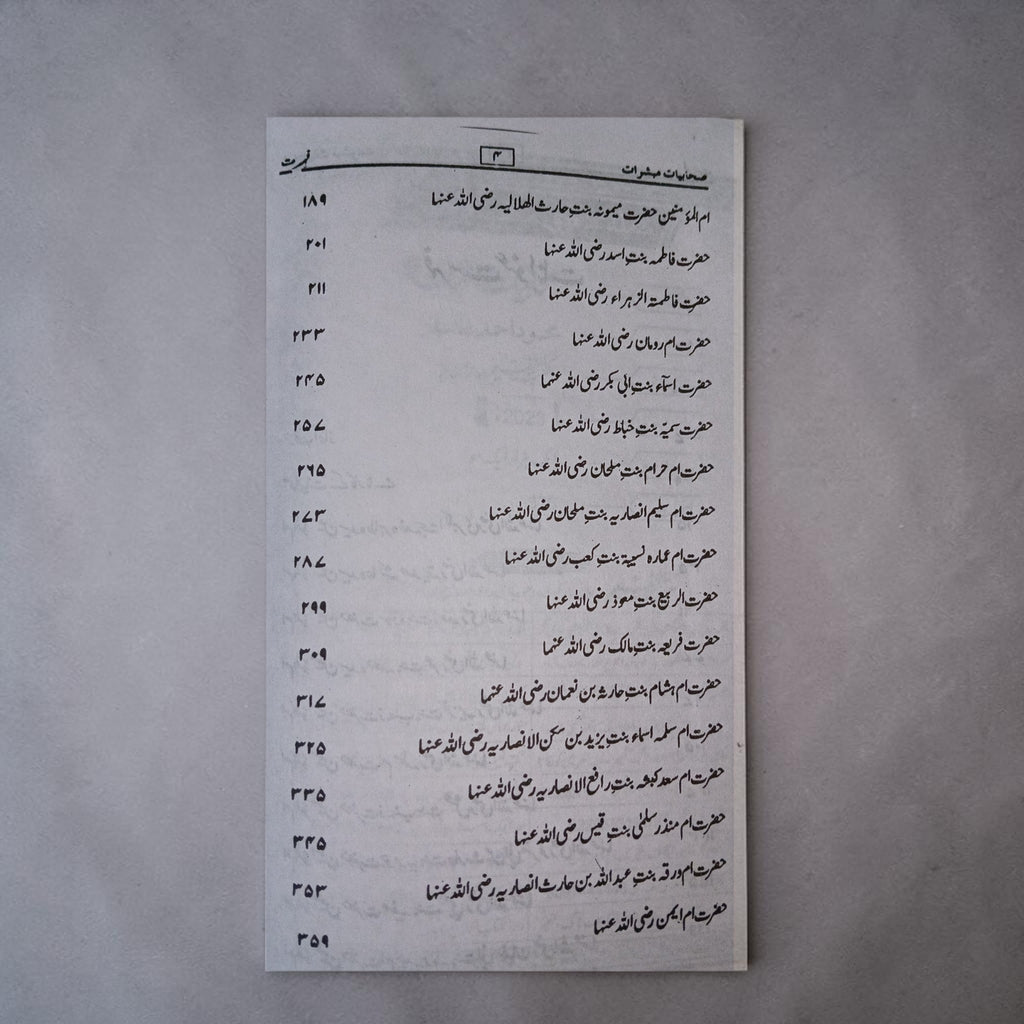 صحابیات مبشرات ۴ فہرست
ام المؤمنین حضرت میمونہ بنتِ حارث الھلالیہ رضی اللہ عنہا ۱۸۹
حضرت فاطمہ بنتِ اسد رضی اللہ عنہا ۲۰۱
حضرت فاطمۃ الزہراء رضی اللہ عنہا ۲۱۱
حضرت ام رومان رضی اللہ عنہا ۲۳۳
حضرت اسمآء بنتِ ابی بکر رضی اللہ عنہما ۲۴۵
حضرت سمیّہ بنتِ خباط رضی اللہ عنہا ۲۵۷
حضرت ام حرام بنتِ ملحان رضی اللہ عنہا ۲۶۵
حضرت ام سلیم انصاریہ بنتِ ملحان رضی اللہ عنہا ۲۷۳
حضرت ام عمارہ نسیبۃ بنتِ کعب رضی اللہ عنہا ۲۸۷
حضرت الربیع بنتِ معوذ رضی اللہ عنہا ۲۹۹
حضرت فریعہ بنتِ مالک رضی اللہ عنہما ۳۰۹
حضرت ام ہشام بنتِ حارثہ بن نعمان رضی اللہ عنہما ۳۱۷
حضرت ام سلمہ اسماء بنتِ یزید بن سکن الانصاریہ رضی اللہ عنہا ۳۲۵
حضرت ام سعد کبشہ بنتِ رافع الانصاریہ رضی اللہ عنہا ۳۳۵
حضرت ام منذر سلمٰی بنتِ قیس رضی اللہ عنہا ۳۴۵
حضرت ام ورقہ بنتِ عبد اللہ بن حارث انصاریہ رضی اللہ عنہا ۳۵۳
حضرت ام ایمن رضی اللہ عنہا ۳۵۹